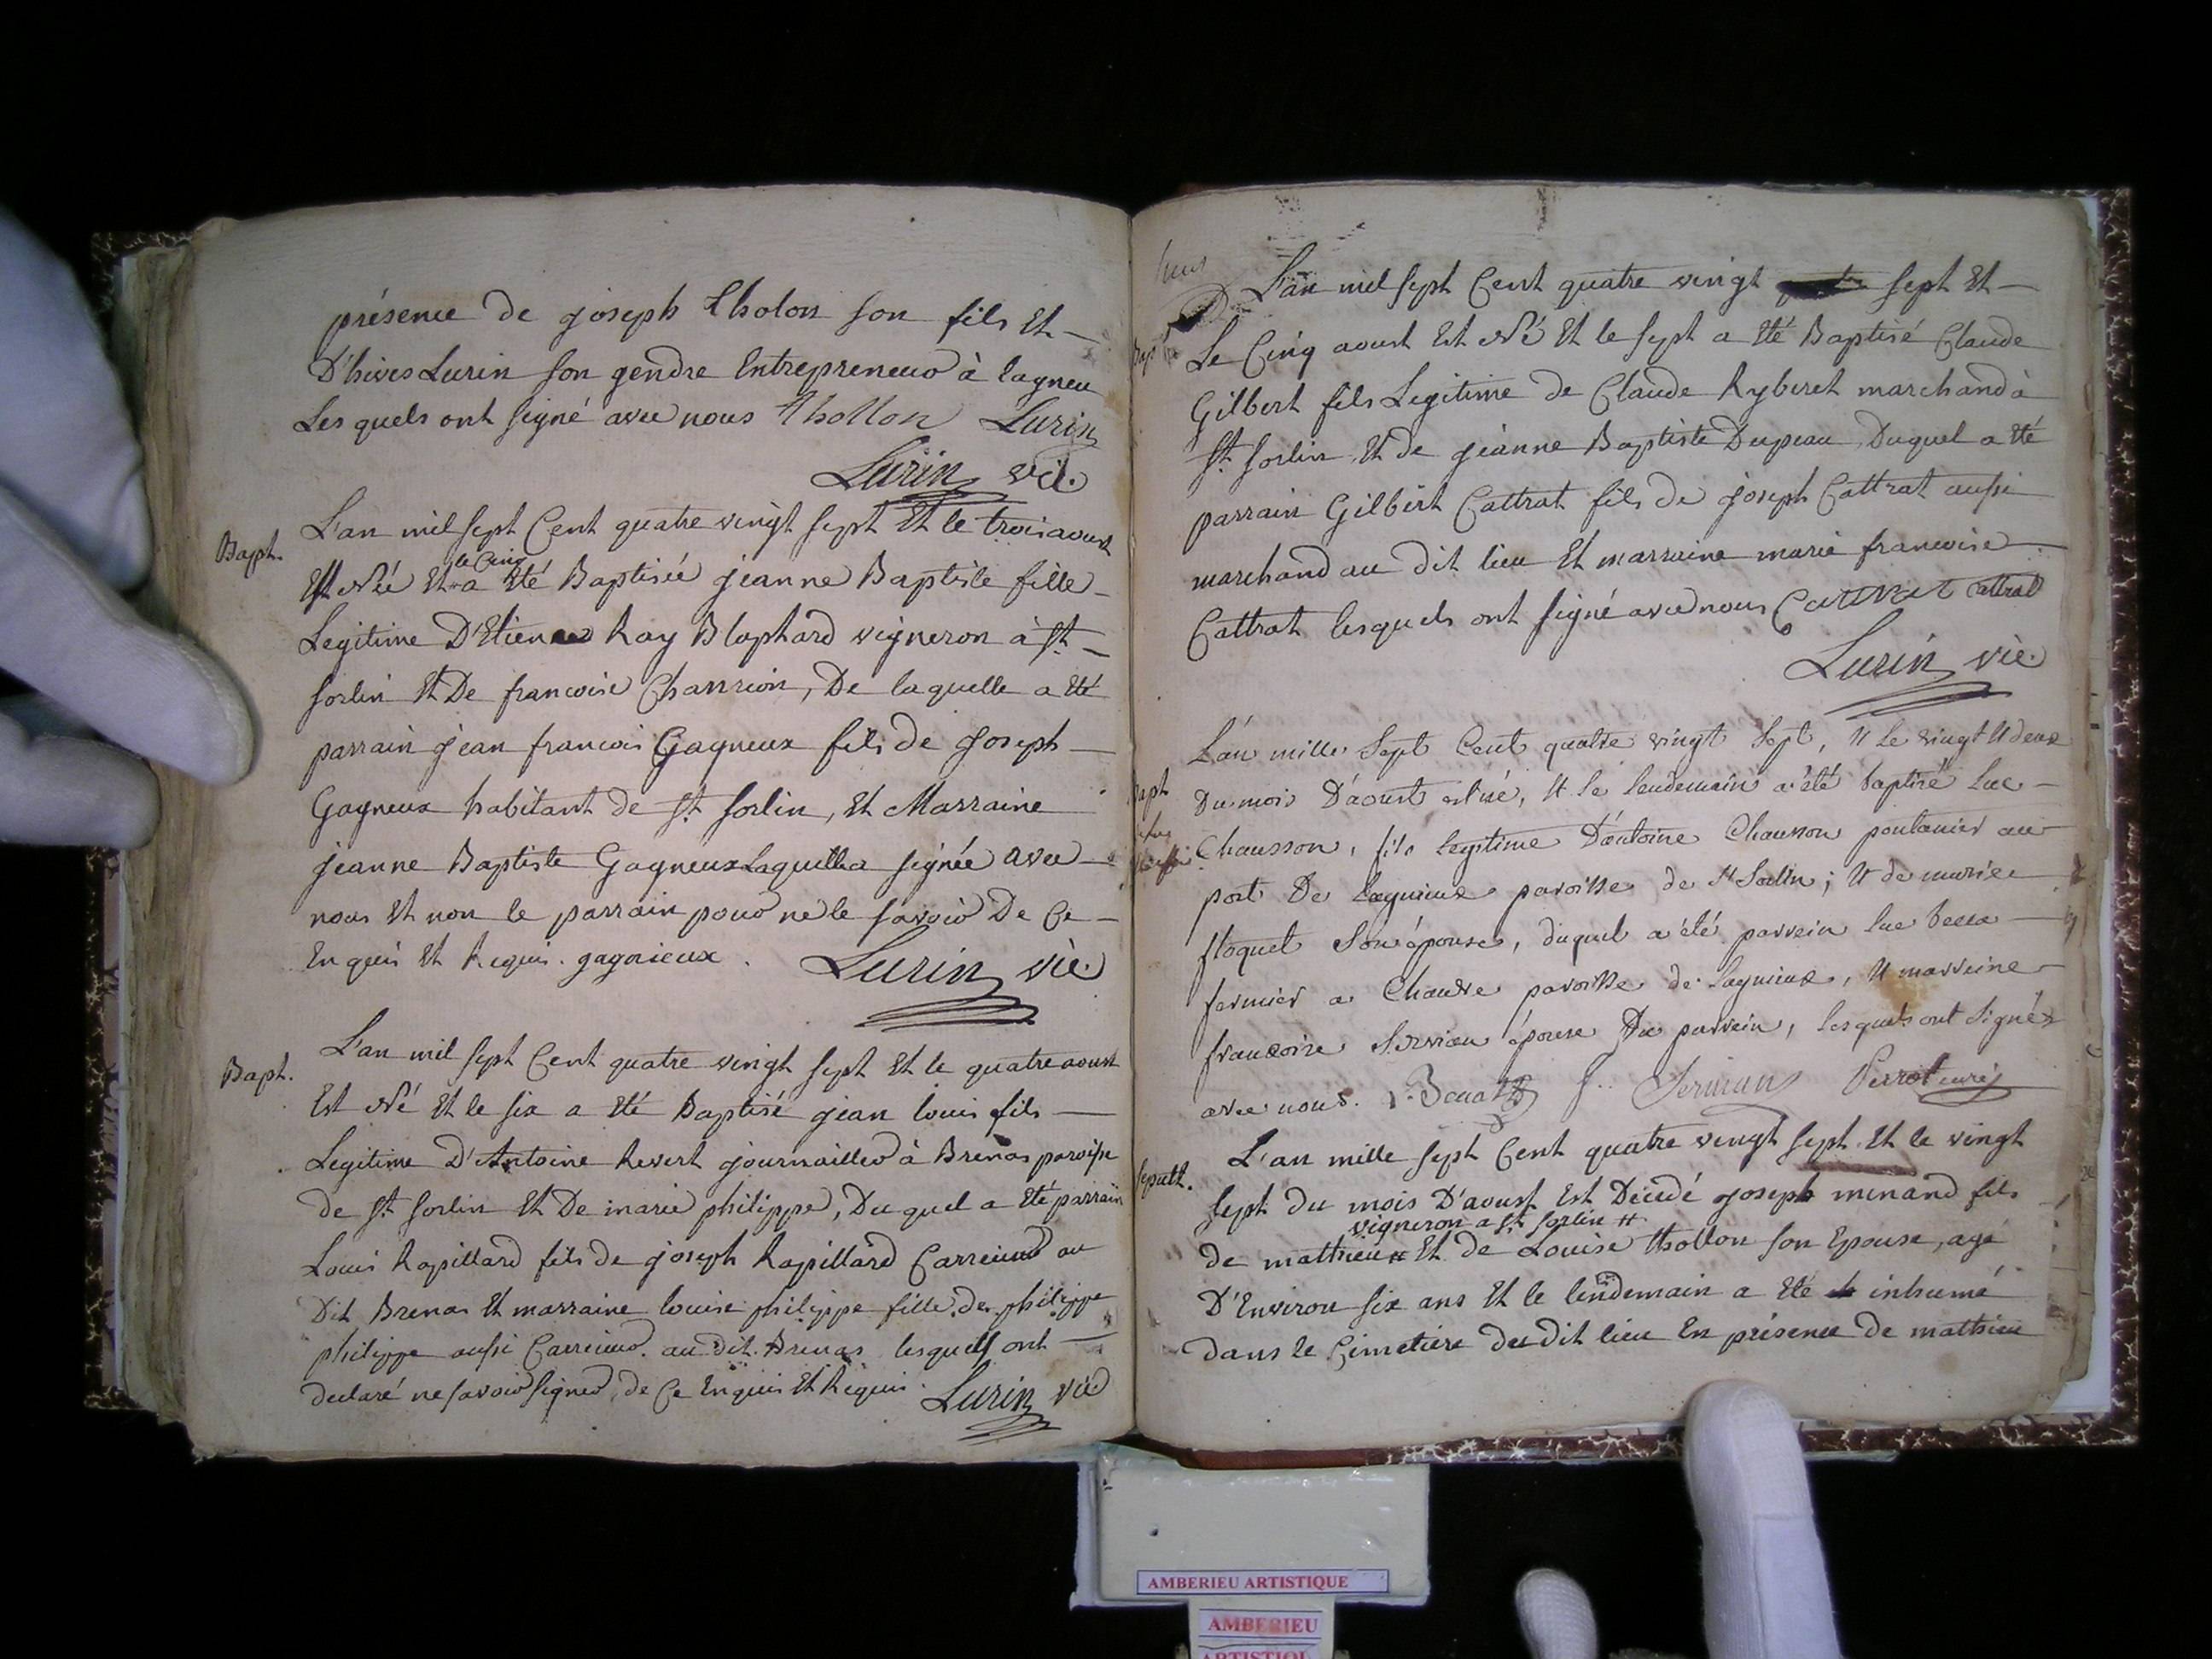 présence de joseph tholon son fils Et
D'hives Lurin son gendre Entrepreneur à lagneu
Les quels ont signé avec nous thollon Lurin
Lurin vic.
Baph.
L'an mil sept Cent quatre vingt sept Et le trois aoust
le Cinq
Est Née Et a Eté Baptisée jeanne Baptiste fille
Legitime D'Etienne Ray Blaphard vigneron à St
sorlin Et De francoise Charrion, De laquelle a Eté
parrain jean francois Gagneux fils de joseph
Gagneux habitant de St sorlin, Et Marraine
jeanne Baptiste Gagneux Laquelle a signée avec
nous Et non le parrain pour ne le savoir De Ce
Enquis Et Requis. gagnieux. Lurin vic.
Baph.
L'an mil sept Cent quatre vingt sept Et le quatre aoust
Est Né Et le six a Eté Baptisé jean louis fils
Legitime D'Antoine Revert journaillier à Brenas paroisse
de St sorlin Et De marie philippe, Du quel a Eté parrain
Louis Rapillard fils de joseph Rapillard Carrieur au
Dit Brenas Et marraine louise philippe fille de philippe
philippe aussi Carrieur au dit Brenas lesquels ont
declaré ne savoir signer, de Ce Enquis Et Requis. Lurin vic
L'an mil sept Cent quatre vingt sept Et
Le Cinq aoust Est Né Et le sept a Eté Baptisé Claude
Gilbert fils Legitime de Claude Ryberet marchand à
St sorlin Et de jeanne Baptiste Dupeau, Duquel a Eté
parrain Gilbert Cattrat fils de joseph Cattrat aussi
marchand au dit lieu Et marraine marie francoise
Cattrat lesquels ont signé avec nous Cattrat Cattrat
Lurin vic.
Baph
L'an mille Sept Cent quatre vingt Sept, Et Le vingt Et deux
Du mois D'aoust est né, Et le lendemain a été baptisé Luc
Chausson, fils legitime D'antoine Chausson pontanier au
port De Lagnieux paroisse de St Sorlin; Et de marie
floquet Son épouse, duquel a été parrein luc
fermier a Chaudre paroisse de Lagnieux, Et marreine
francoise Servian épouse Du parrein, lesquels ont Signés
avec nous. F. Servian Perrot curé
Sepult.
L'an mille sept Cent quatre vingt sept Et le vingt
sept du mois D'aoust Est Décédé joseph minand fils
vigneron a St sorlin #
de mathieu # Et de Louise thollon son Epouse, agé
D'Environ six ans Et le lendemain a Eté inhumé
dans le Cimetiere du dit lieu En présence de mathieu
AMBERIEU ARTISTIQUE
AMBERIEU
ARTISTIQUE